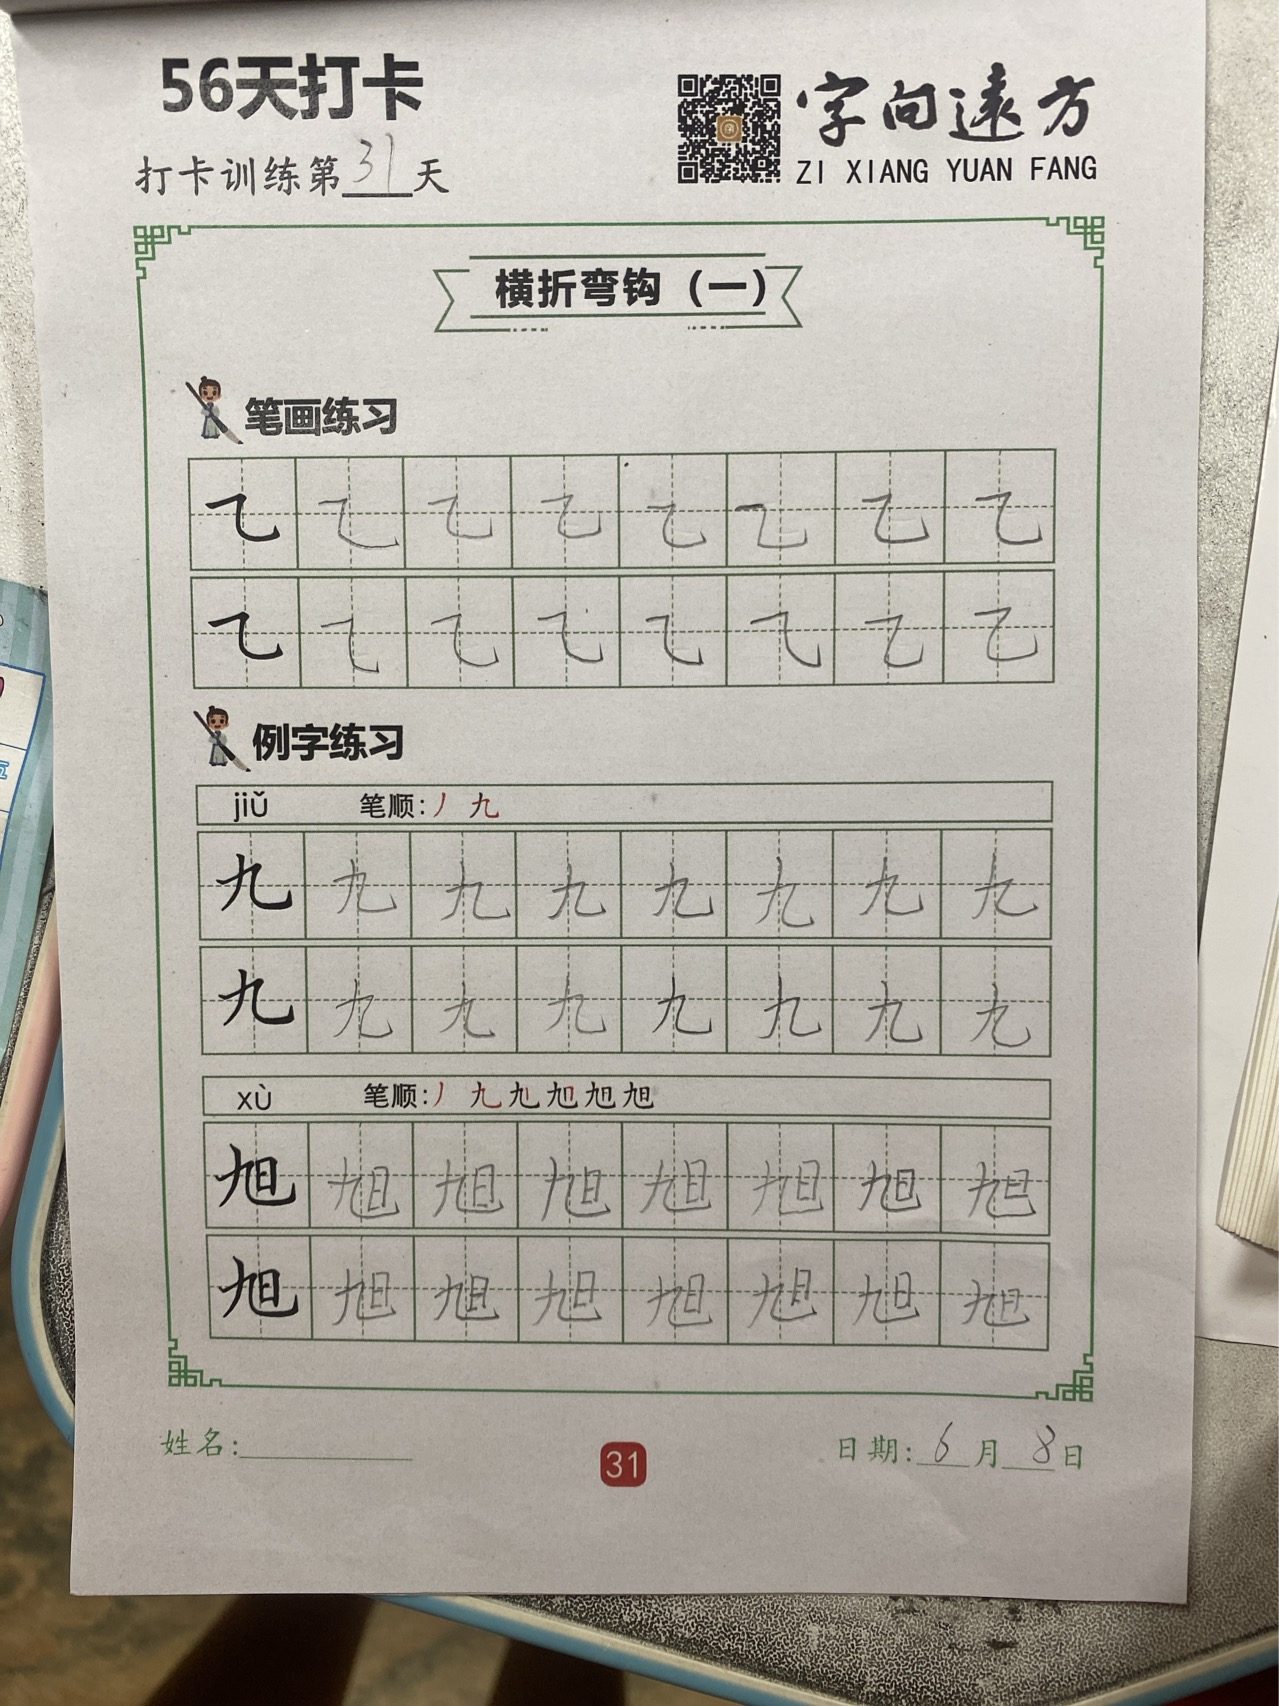 56天打卡
打卡训练第31天
字向遠方
ZI XIANG YUAN FANG
横折弯钩（一）
笔画练习
㇈ ㇈ ㇈ ㇈ ㇈ ㇈ ㇈ ㇈
㇈ ㇈ ㇈ ㇈ ㇈ ㇈ ㇈ ㇈
例字练习
jiǔ 笔顺:丿 九
九 九 九 九 九 九 九 九
九 九 九 九 九 九 九 九
xù 笔顺:丿 九 旭 旭 旭 旭
旭 旭 旭 旭 旭 旭 旭 旭
旭 旭 旭 旭 旭 旭 旭 旭
姓名:
31
日期: 6月 8日